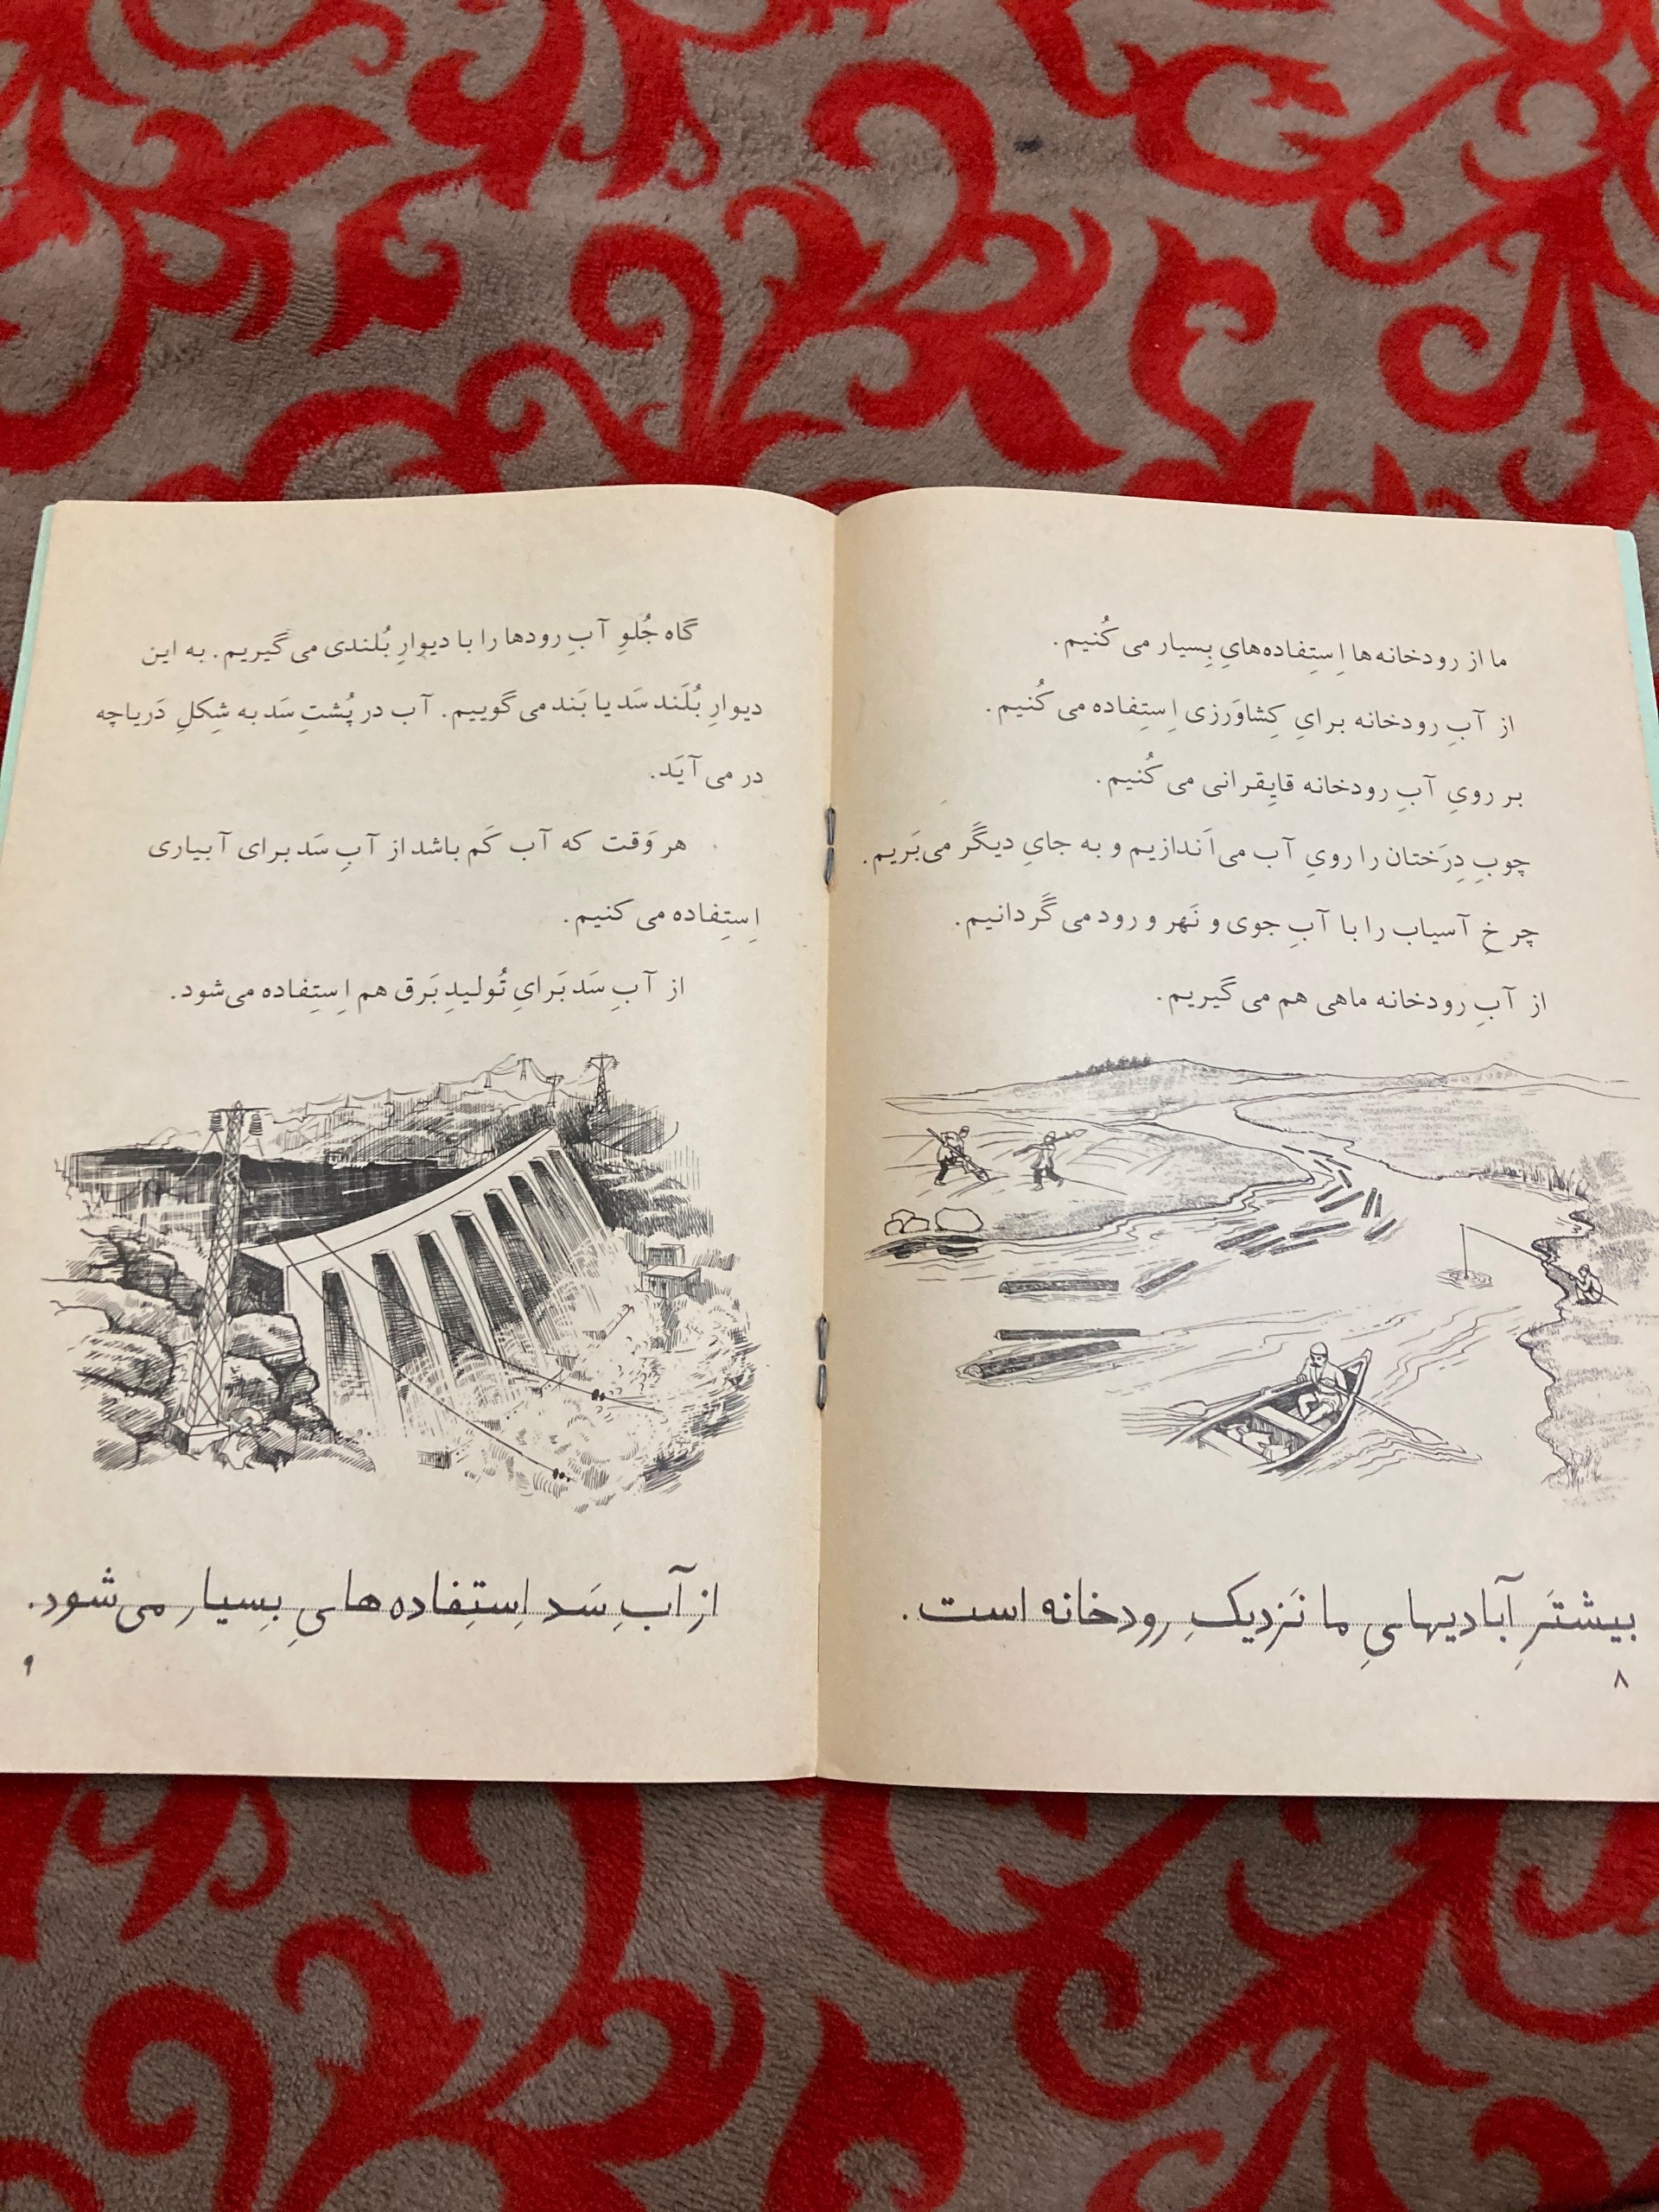 ما از رودخانه‌ها اِستِفاده‌هایِ بِسیار می کُنیم.
از آبِ رودخانه برایِ کِشاوَرزی اِستِفاده می کُنیم.
بر رویِ آبِ رودخانه قایِقرانی می کُنیم.
چوبِ دِرَختان را رویِ آب می‌اَندازیم و به جایِ دیگَر می‌بَریم.
چرخِ آسیاب را با آبِ جوی و نَهر و رود می گَردانیم.
از آبِ رودخانه ماهی هم می گیریم.
بیشتَرِ آبادیهایِ ما نَزدیکِ رودخانه است.
۸
گاه جُلوِ آبِ رودها را با دیوارِ بُلندی می گیریم. به این
دیوارِ بُلَند سَد یا بَند می گوییم. آب در پُشتِ سَد به شِکلِ دَریاچه
در می آیَد.
هر وَقت که آب کَم باشد از آبِ سَد برای آبیاری
اِستِفاده می کنیم.
از آبِ سَد بَرایِ تُولیدِ بَرق هم اِستِفاده می‌شود.
از آبِ سَد اِستِفاده‌هایِ بِسیار می‌شود.
۹